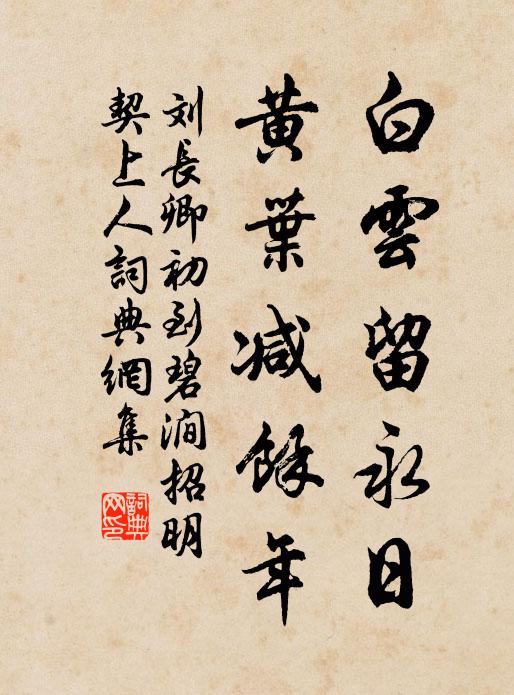 白雲留永日
黃葉減餘年
刘長卿初到碧澗招明
契上人詞典網集
詞典网印